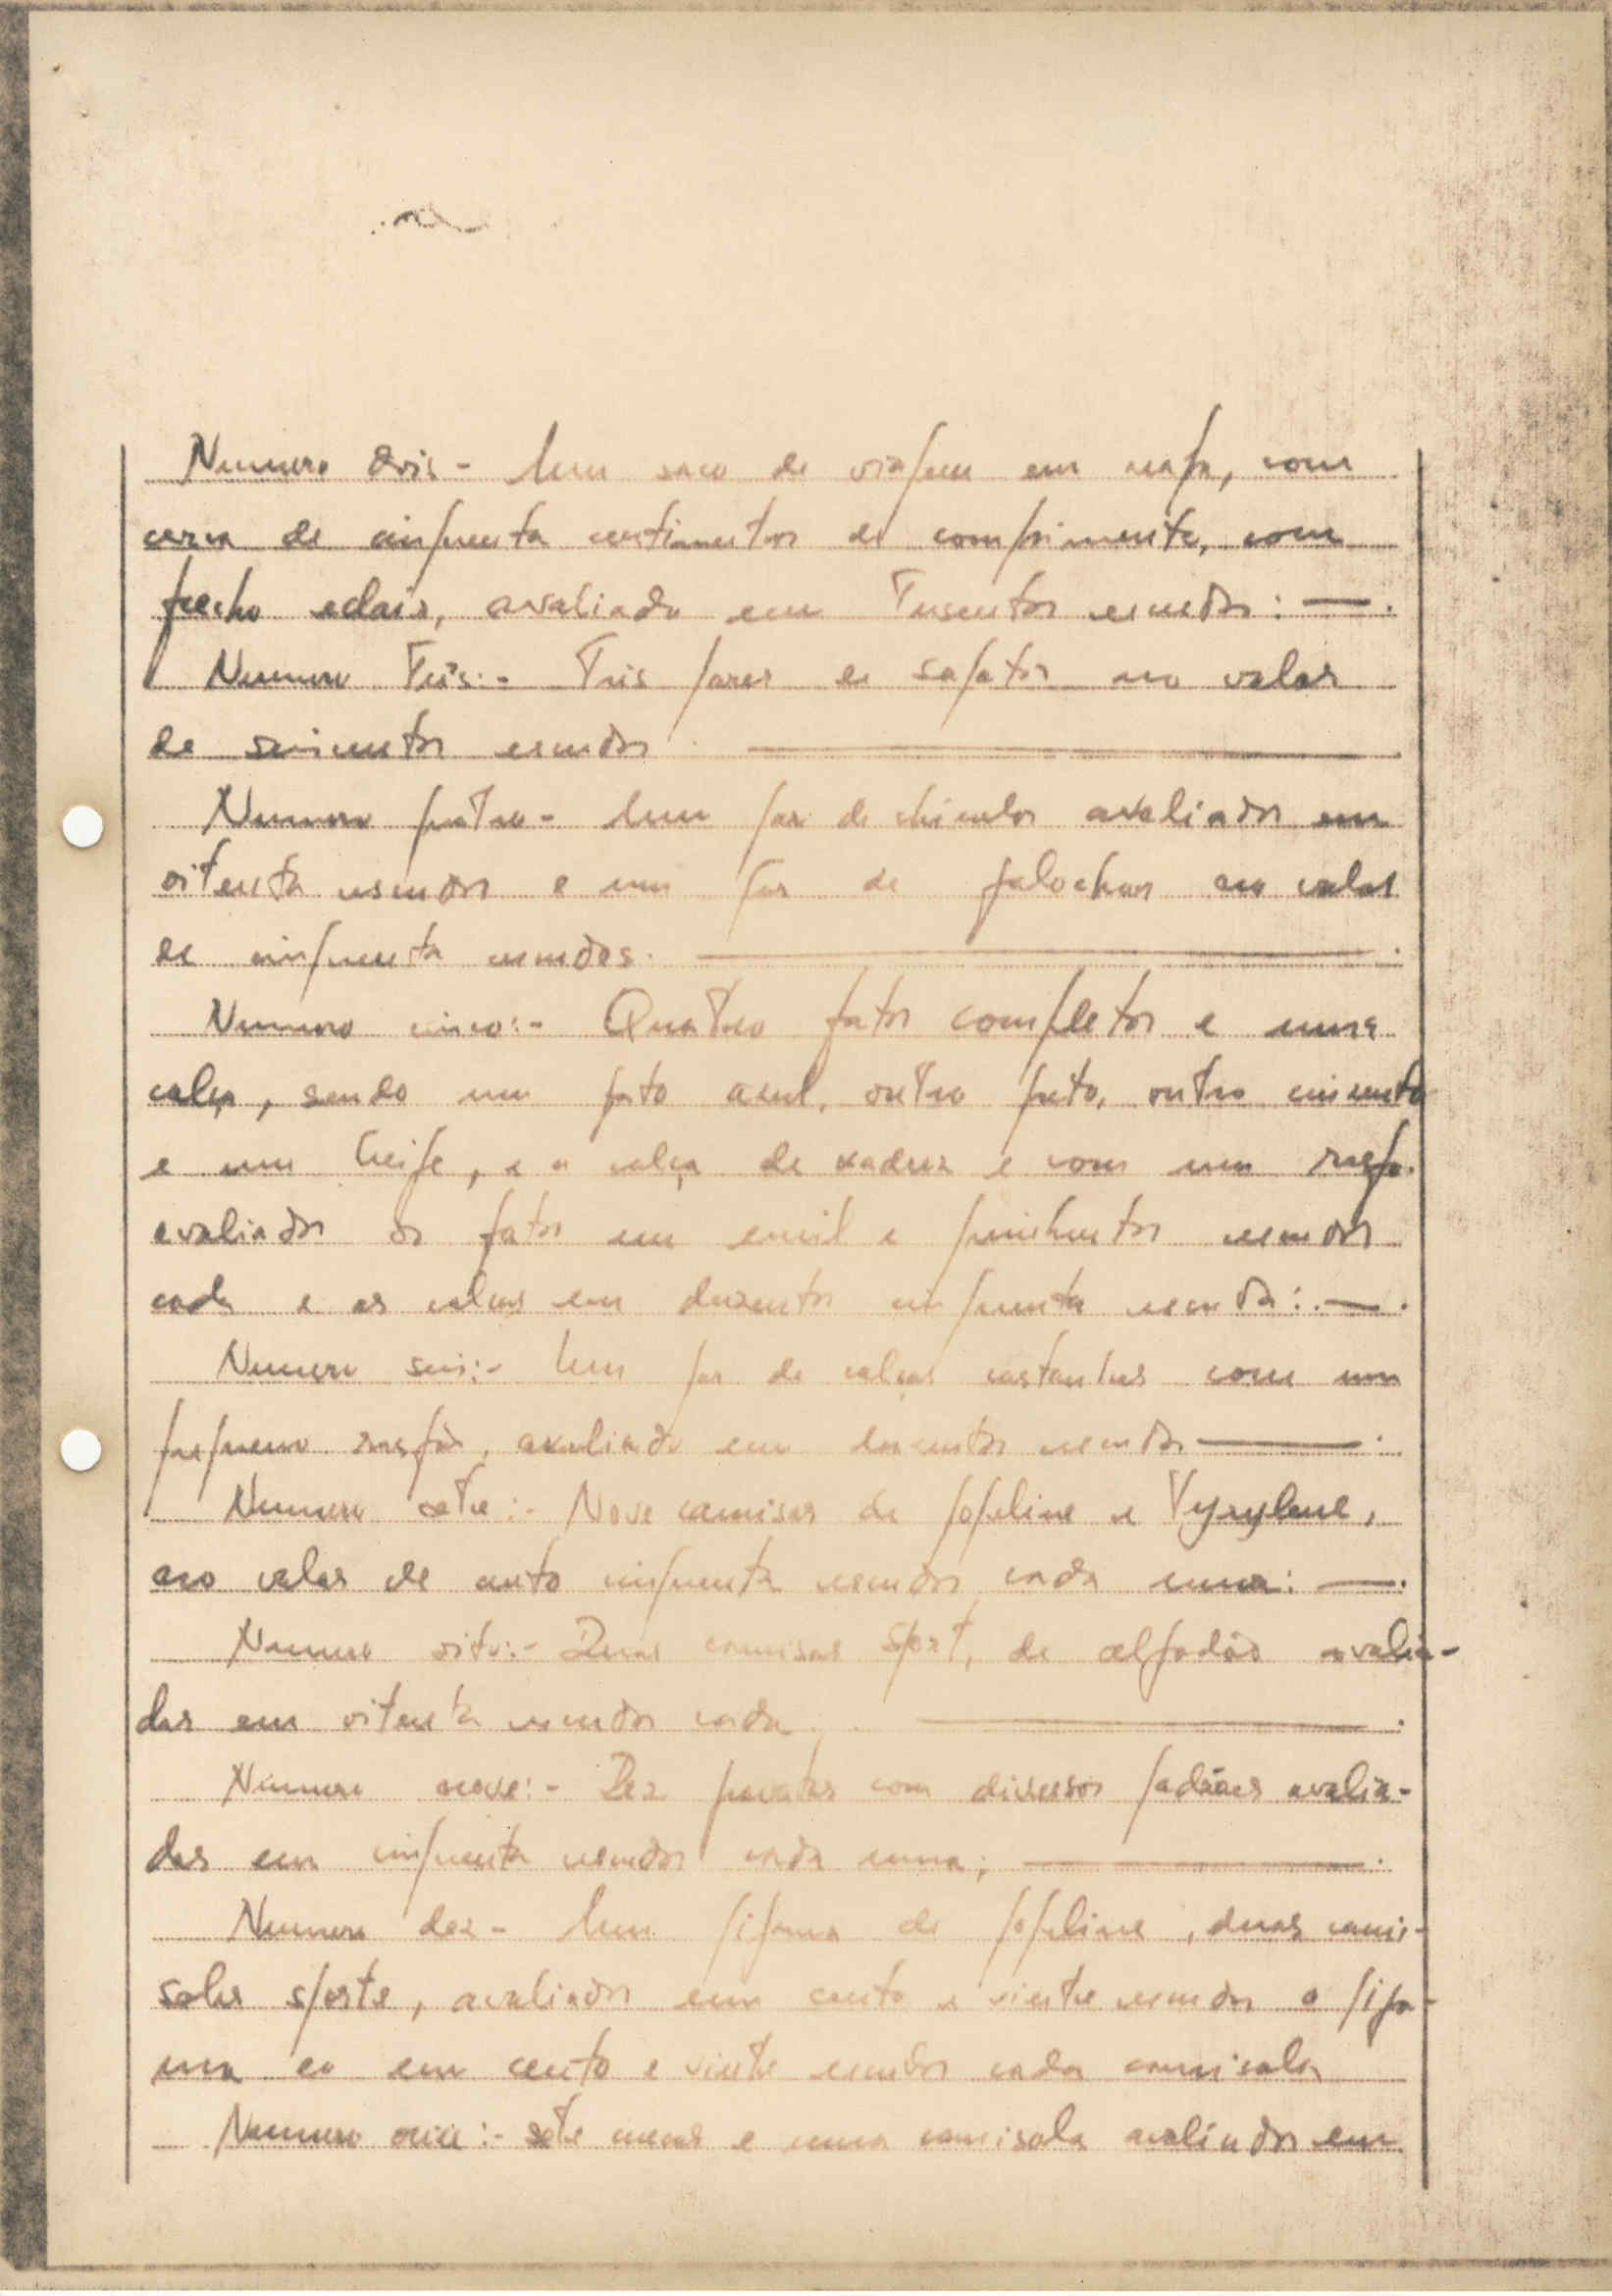 Numero dois - Um saco de viagem em napa, com
cerca de cinquenta centimentos de comprimento, com
fecho eclair, avaliado em Tresentos escudos: —.
Numero Três:- Três pares de sapatos no valor
de seiscentos escudos
Numero quatro - Um par de chinelos avaliados em
oitenta escudos e um par de galochas no valor
de cinquenta escudos.
Numero cinco:- Quatro fatos completos e uma
calça, sendo um fato azul, outro preto, outro cinzento
e um beije, e a calça de xadrez e com um rasgo.
avaliados os fatos em mil e quinhentos escudos
cada e as calças em duzentos cinquenta escudos: —.
Numero seis:- Um par de calças castanhas com um
pequeno rasgão, avaliado em duzentos escudos —.
Numero sete:- Nove camisas de popeline e Tyrylene,
no valor de cento cinquenta escudos cada uma: —.
Numero oito:- Duas camisas Sport, de algodão avalia-
das em oitenta escudos cada
Numero nove:- Dez gravatas com diversos padrões avalia-
das em cinquenta escudos cada uma;
Numero dez - Um pijama de popeline, duas cami-
solas sporte, avaliados em cento e vinte escudos o pija-
ma e em cento e vinte escudos cada camisola
Numero onze:- sete cuecas e uma camisola avaliados em